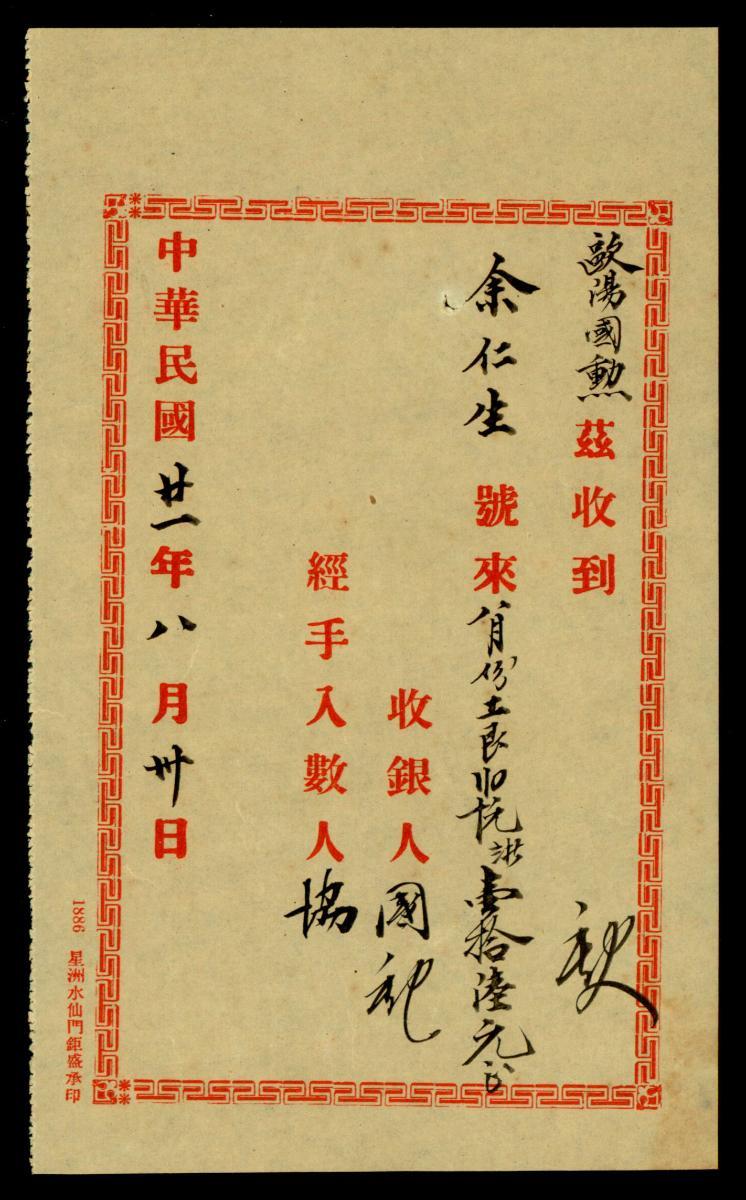 歐陽國勲茲收到
余仁生號來八月份工艮收訖計壹拾陸元
收銀人國
經手入數人協
中華民國廿一年八月卅日
1886 星洲水仙門鉅盛承印